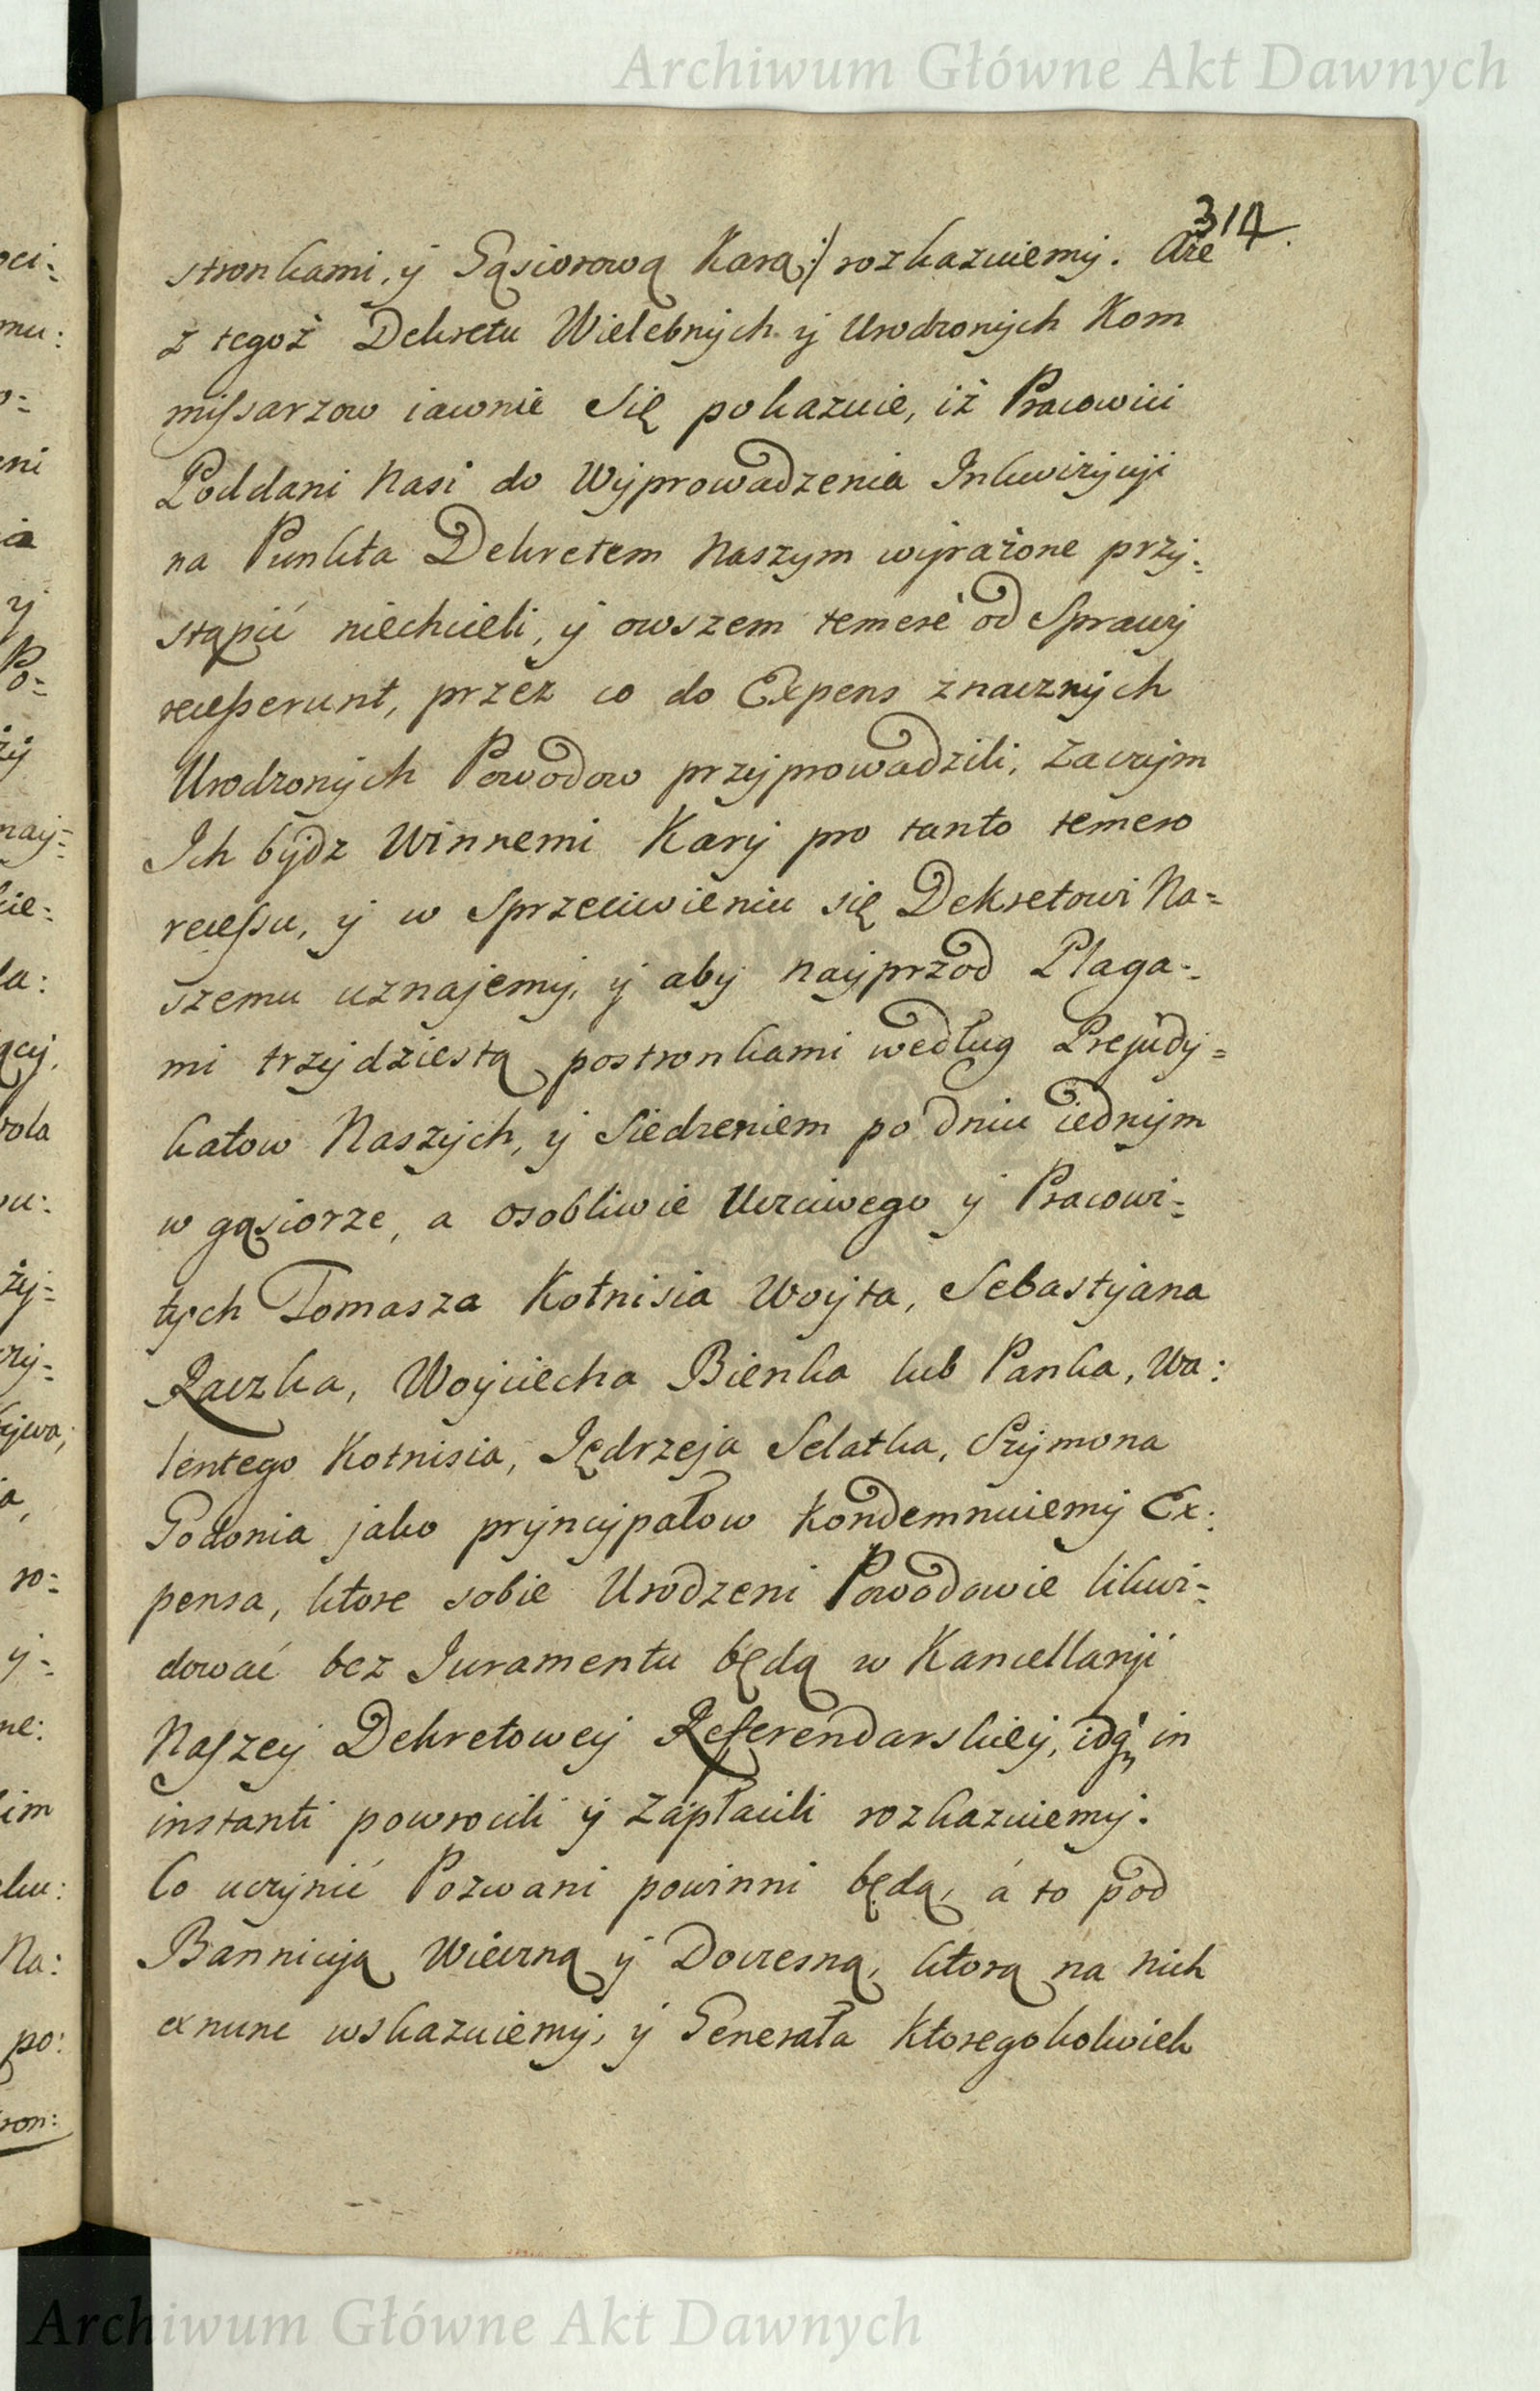 Archiwum Główne Akt Dawnych
314.
stronkami, y Gąsiorową Karą:/ rozkazuiemy. Aże
z tegoż Dekretu Wielebnych y Urodzonych Kom
missarzow iawnie się pokazuie, iż Pracowici
Poddani Nasi do Wyprowadzenia Inkwizycyi
na Punkta Dekretem Naszym wyrażone przy:
stąpić niechcieli, y owszem temerè od Sprawy
recesserunt, przez co do Expens znacznych
Urodzonych Powodow przyprowadzili, Zaczym
Ich bydz Winnemi Kary pro tanto temero
recessu, y w Sprzeciwieniu się Dekretowi Na=
szemu uznajemy, y aby nayprzod Plaga=
mi trzydziestą postronkami według Prejudy=
katow Naszych, y Siedzeniem po dniu iednym
w gąsiorze, a osobliwie Uczciwego y Pracowi=
tych Tomasza Kotnisia Woyta, Sebastyana
Raczka, Woyciecha Bienka lub Panka, Wa:
lentego Kotnisia, Jędrzeja Selatka, Szymona
Godonia jako pryncypałow Kondemnuiemy Ex:
pensa, ktore sobie Urodzeni Powodowie likwi=
dować bez Juramentu będą w Kancellaryi
Naszey Dekretowey Referendarskiey, in
instanti powrocili y Zapłacili rozkazuiemy.
Co uczynić Pozwani powinni będą, á to pod
Bannicyą Wieczną y Doczesną, ktorą na nich
ex nunc wskazuiemy, y Generała Ktoregokolwiek
Archiwum Główne Akt Dawnych